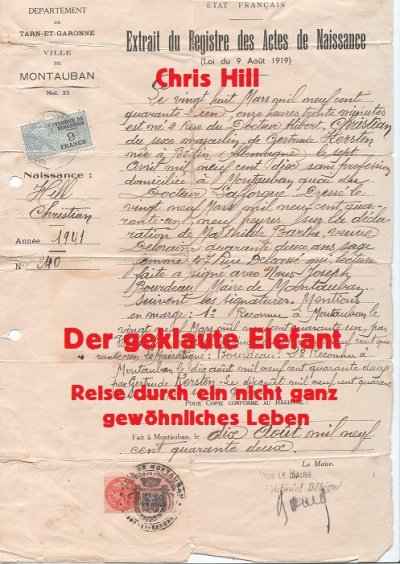 DÉPARTEMENT
DE
TARN-ET-GARONNE
VILLE
DE
MONTAUBAN
Mod. 53
ÉTAT FRANÇAIS
Extrait du Registre des Actes de Naissance
(Loi du 9 Août 1919)
Chris Hill
9
FRANCS
Naissance :
Hill
Christian
Année 1941
N° 240
Le vingt huit Mars mil neuf cent
quarante-un, onze heures trente minutes
est né 2 Rue du Docteur Hibert, Christian
du sexe masculin, de Gertrude Kersten
née à Berlin (Allemagne) le sept
Avril mil neuf cent dix sans profession
domiciliée à Montauban quai du
Docteur Lafforgue. Dressé le
vingt neuf Mars mil neuf cent qua-
rante-un, neuf heures sur la décla-
ration de Mathilde Barthe, veuve
quarante deux ans sage
femme 47 Rue qui, lecture
faite a signé avec Nous Joseph
Bourdeau Maire de Montauban.
Suivent les signatures. Mentions
en marge : 1° Reconnu à Montauban le
vingt Mars mil neuf cent quarante un, par
Der geklaute Elefant
Bourdeau. 2° Reconnu à
Montauban le dix août mil neuf cent quarante deux
par Gertrude Kersten. Le dix août mil neuf cent quarante
Reise durch ein nicht ganz
gewöhnliches Leben
POUR COPIE CONFORME AU REGISTRE :
Fait à Montauban, le dix Août mil neuf
cent quarante deux.
Le Maire,
POUR LE MAIRE
L'Adjoint Délégué
MONTAUBAN